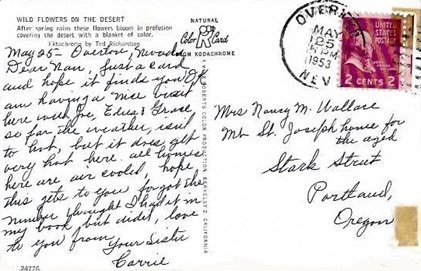 WILD FLOWERS ON THE DESERT
After spring rains these flowers bloom in profusion
covering the desert with a blanket of color.
Ektachrome by Ted Richardson
NATURAL
Color Card
FROM KODACHROME
May 25 - Overton, Nevada
Dear Nan, Just a card
and hope it finds you OK
am having a nice visit
here with Joe, Edna & Grace
so far the weather, isn't
to hot, but it does get
very hot here. all homes
here are air cooled, hope
this gets to you forgot the
number thought I had it in
my book, but didn't, love
to you from Your Sister
Carrie
28776
ROBERTS COLOR PRODUCTION BERKELEY 2 CALIFORNIA
OVERTON
MAY
25
PM
1953
NEV.
UNITED STATES
POSTAGE
2 CENTS 2
Mrs Nancy M. Wallace
Mt. St. Joseph house for
the aged
Stark Street
Portland,
Oregon